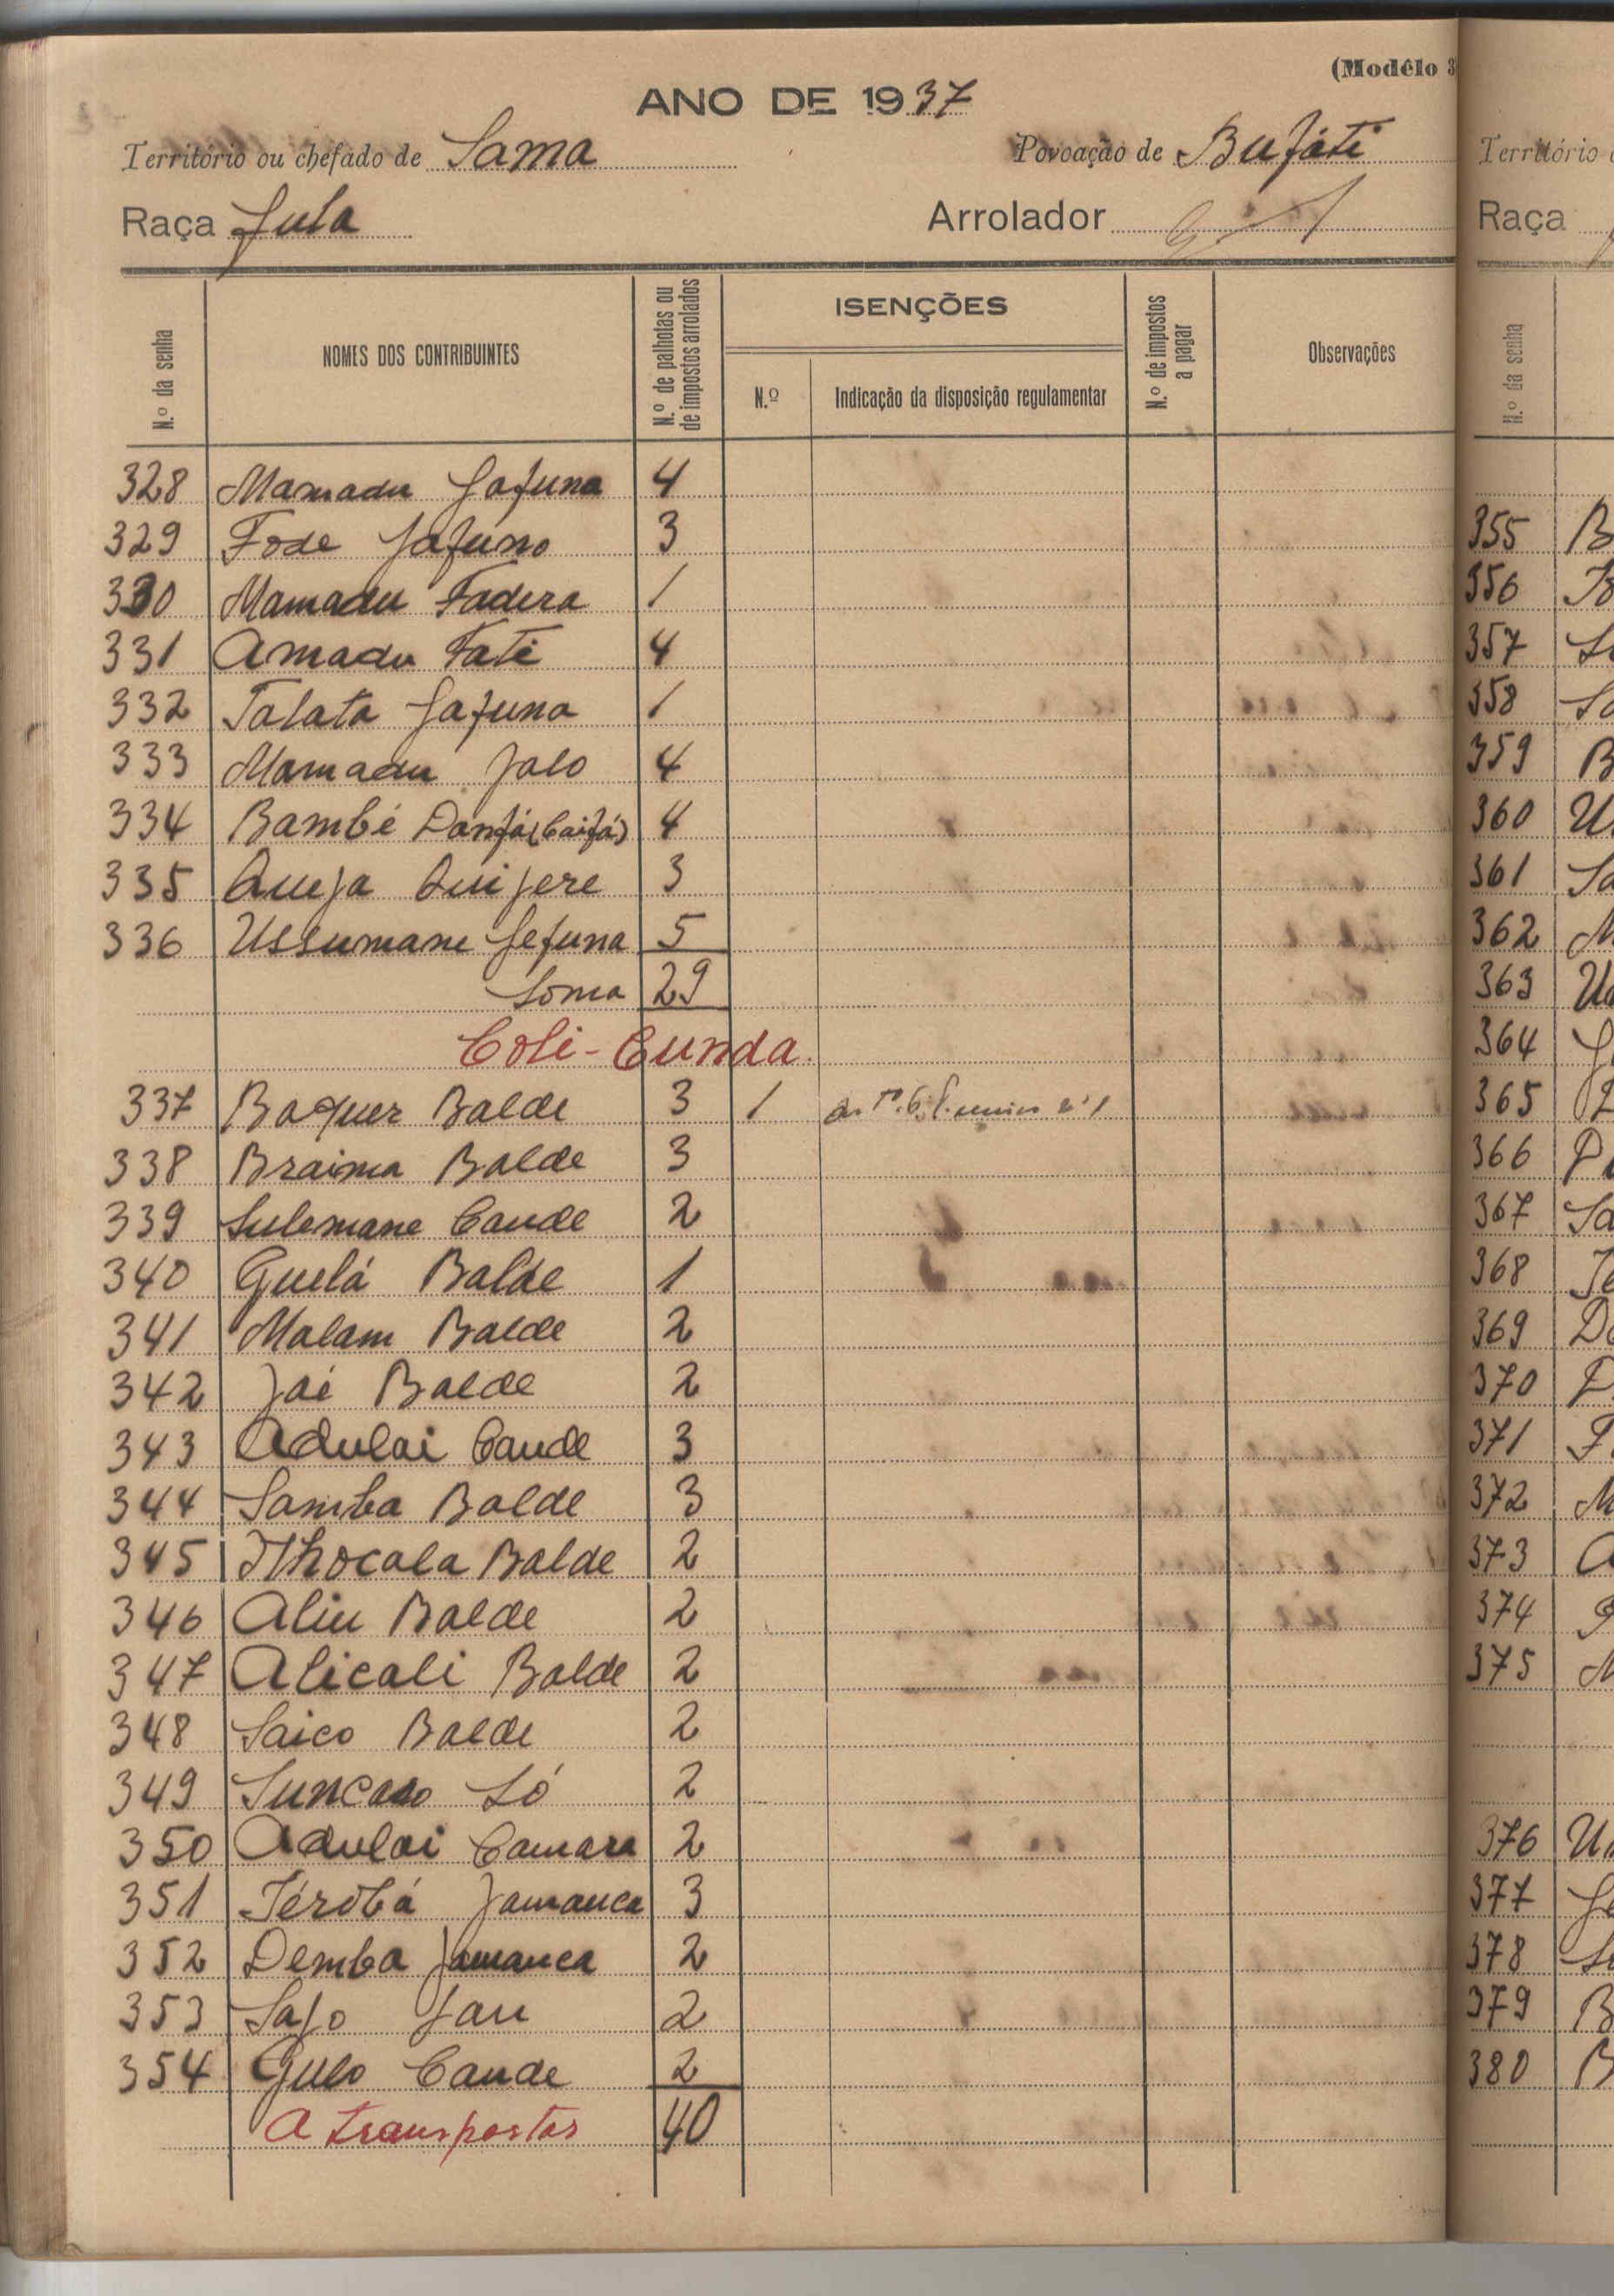 (Modêlo 3
ANO DE 1937
Território ou chefado de Sama Povoação de Bufáti
Raça Fula Arrolador
N.º da senha NOMES DOS CONTRIBUINTES N.º de palhotas ou de impostos arrolados ISENÇÕES N.º Indicação da disposição regulamentar N.º de impostos a pagar Observações
328 Mamadu Jafuna 4
329 Fode Jafuno 3
330 Mamadu Fadera 1
331 Amadu Fati 4
332 Talata Jafuna 1
333 Mamadu Jalo 4
334 Bambé Danfá (Caifá) 4
335 Queja Quijere 3
336 Ussumane Jefuna 5
Soma 29
Coli-Cunda
337 Boquer Balde 3 1
338 Braima Balde 3
339 Sulemane Cande 2
340 Guelá Balde 1
341 Malam Balde 2
342 Jai Balde 2
343 Adulai Cande 3
344 Samba Balde 3
345 Balde 2
346 Aliu Balde 2
347 Alicali Balde 2
348 Saico Balde 2
349 Suncaro Só 2
350 Adulai Camara 2
351 Térobá Jamanca 3
352 Demba Jamanca 2
353 Sajo Jau 2
354 Gulo Cande 2
A transportar 40
Território
Raça
N.º da senha
355 B
356
357
358
359 B
360 U
361 Sa
362 M
363 U
364
365
366 P
367 Sa
368
369 D
370
371
372 M
373 A
374
375 M
376 U
377
378
379 B
380 B